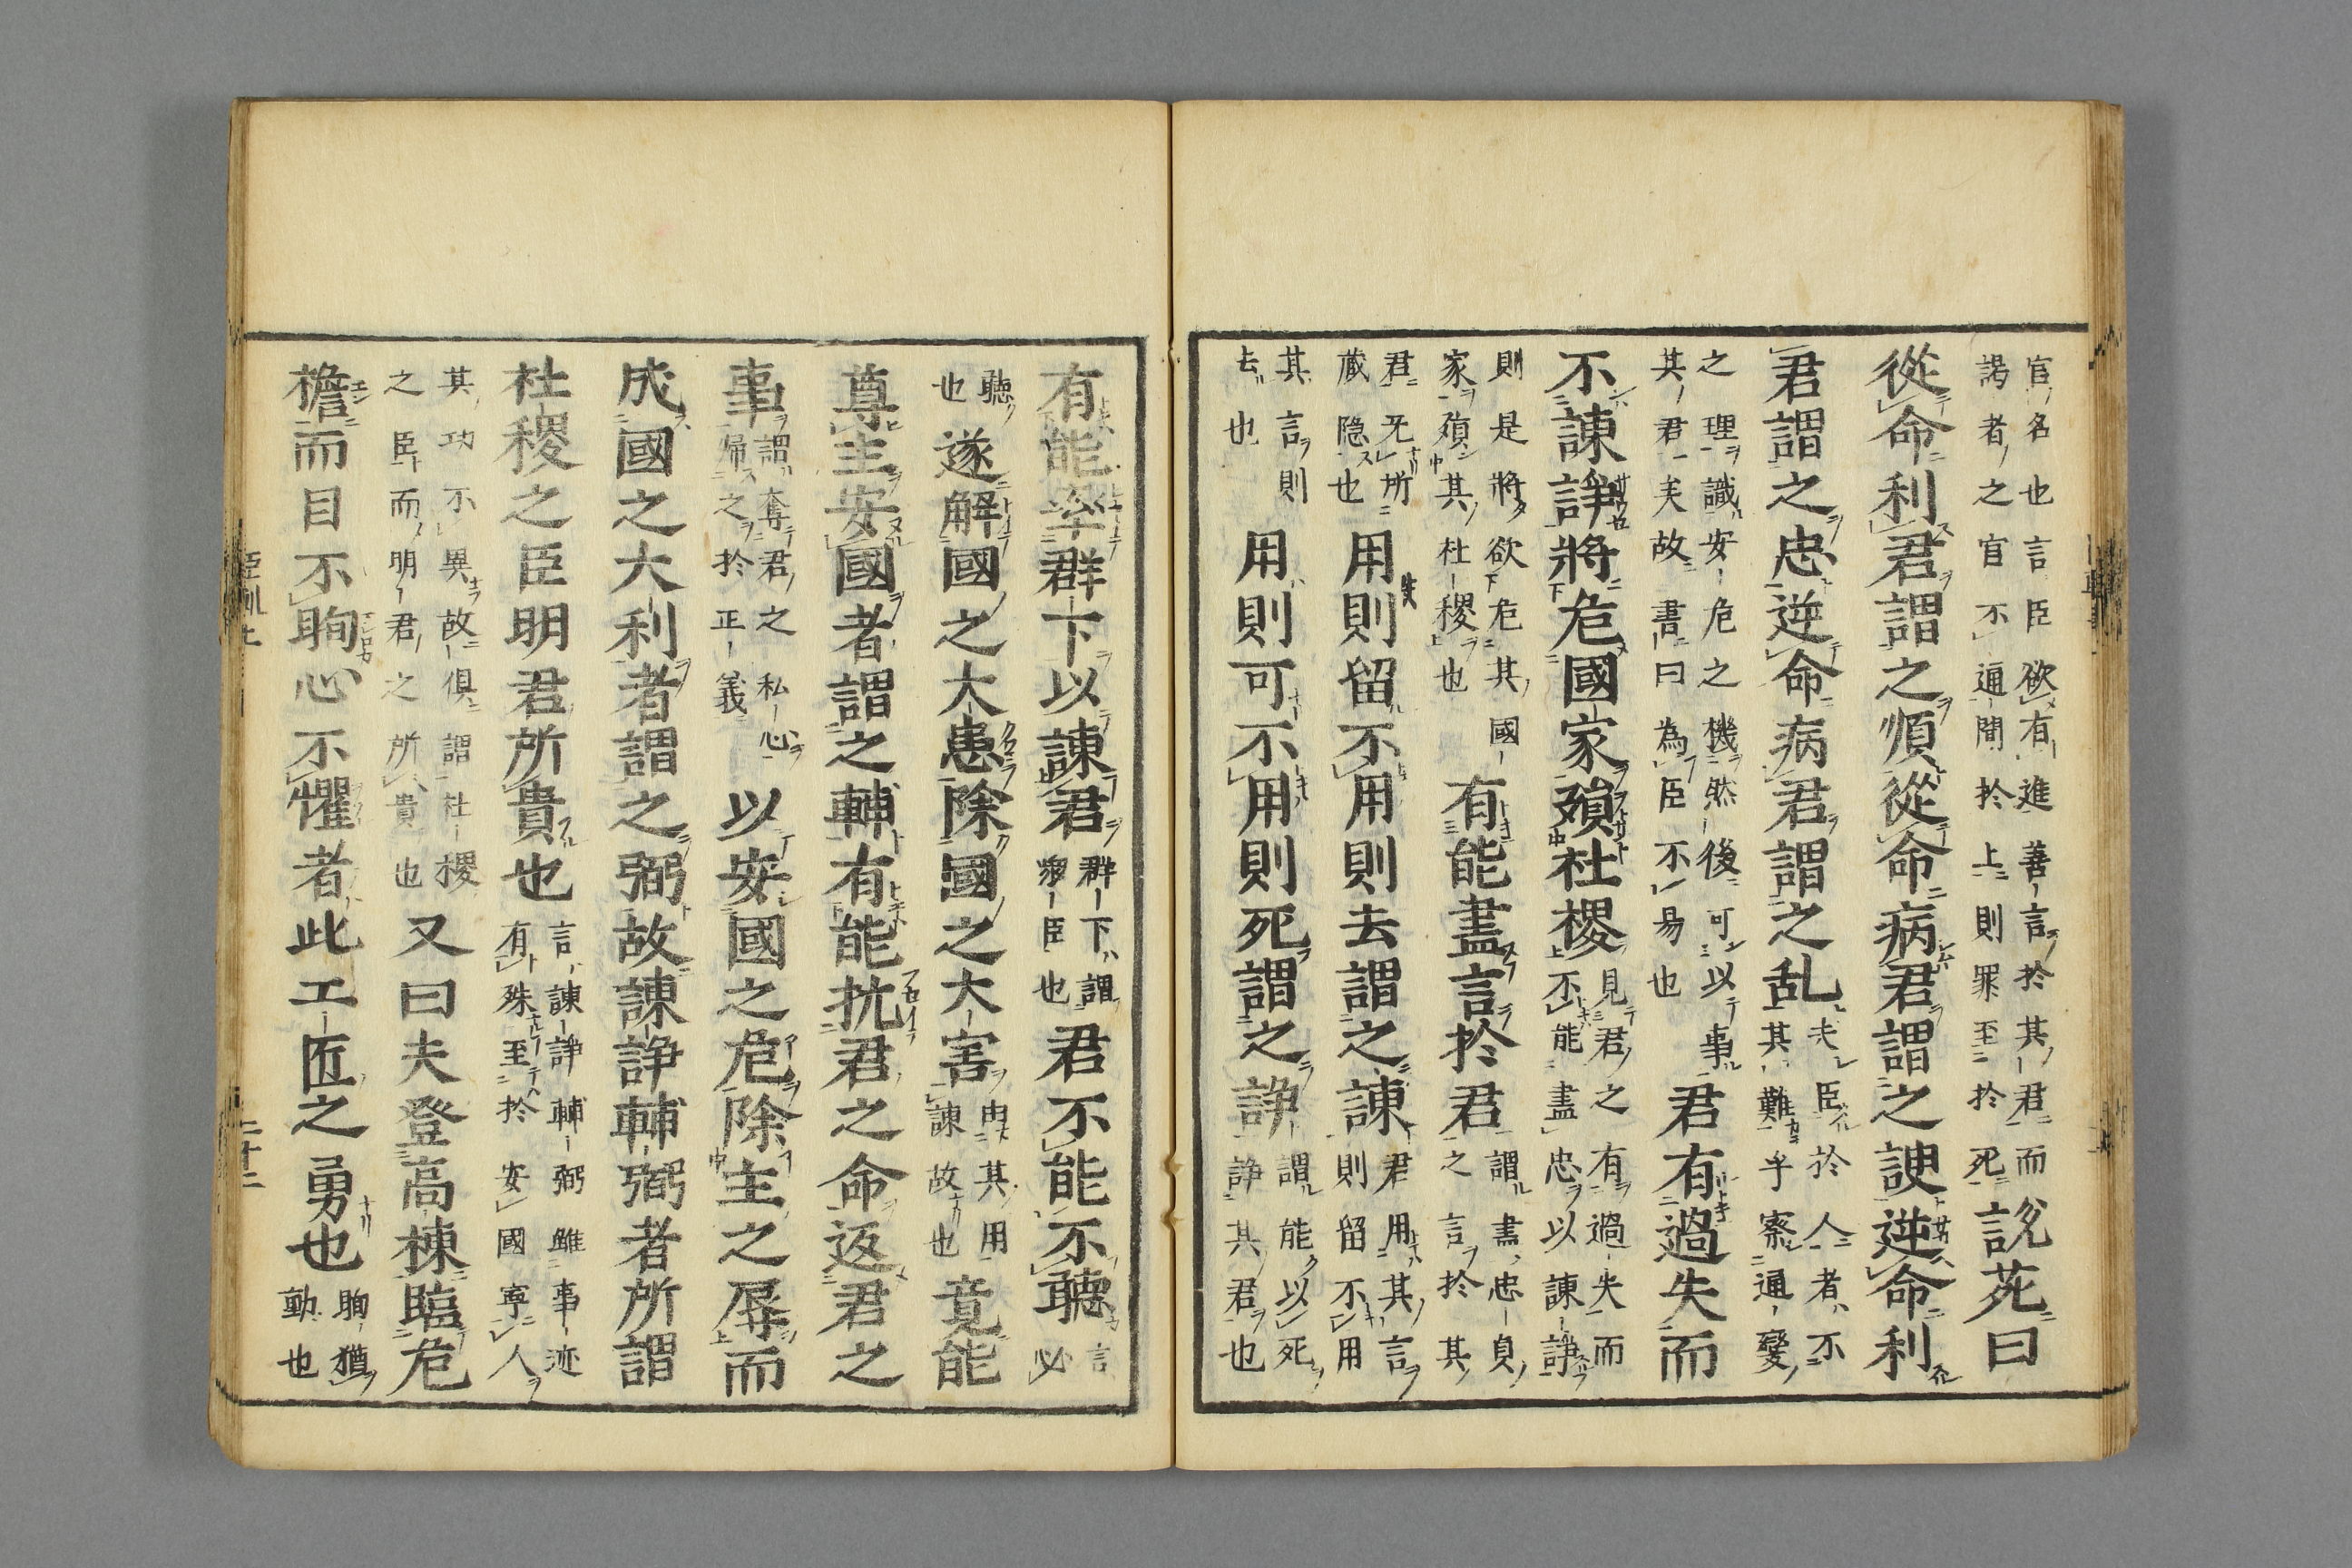 官名也言臣欲有進善言於其君而
謁者之官不通聞於上則罪至於死
說苑曰
從命利君謂之順從命病君謂之諛逆命利
君謂之忠逆命病君謂之乱
夫臣於人者不
其難乎察通變
之理識安危之機然後可以事
其君矣故書曰為臣不易也
君有過失而
不諫諍將危國家殞社稷
見君之有過失而
不能盡忠以諫諍
則是將欲危其國
家殞其社稷也
有能盡言於君
謂盡忠貞
之言於其
君无所
蔵隐也
用則留不用則去謂之諫
君用其言
則留不用
其言則
去也
用則可不用則死謂之諍
謂能以死
諍其君也
有能率群下以諫君
群下謂
衆臣也
君不能不聽
言
必
聽
也
遂解國之大患除國之大害
由其用
諫故也
竟能
尊主安國者謂之輔有能抗君之命返君之
事
謂奪君之私心
歸之於正義
以安國之危除主之辱而
成國之大利者謂之弼故諫諍輔弼者所謂
社稷之臣明君所貴也
言諫諍輔弼雖事迹
有殊至於安國寧人
其功不異故俱謂社稷
之臣而明君之所貴也
又曰夫登高棟臨危
檐而目不眴心不懼者此工匠之勇也
眴猶
動也